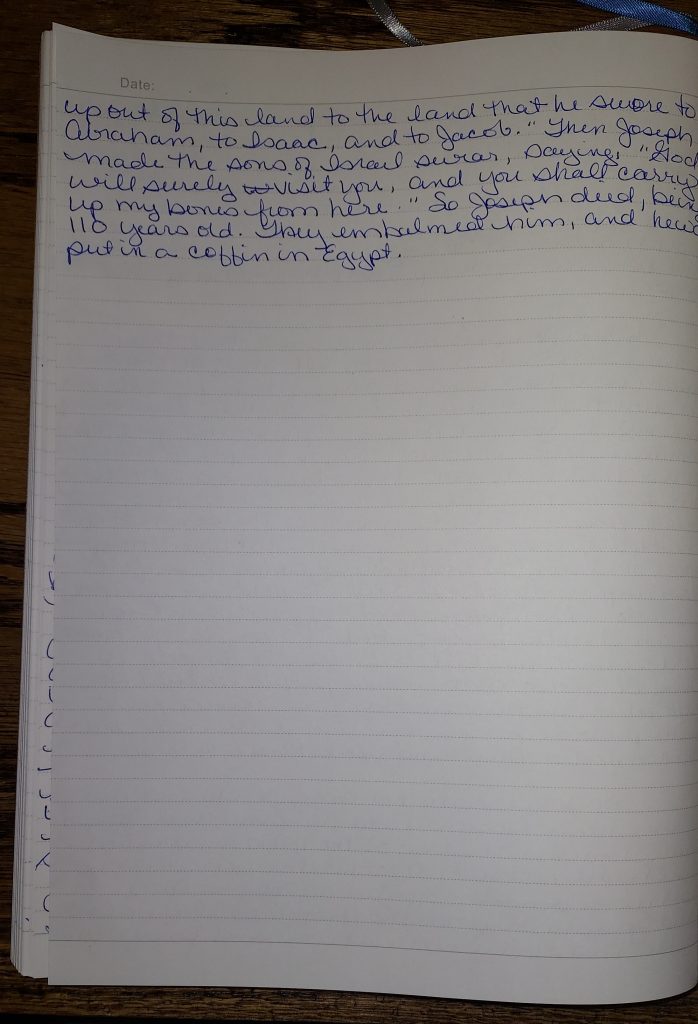 Date:
up out of this land to the land that he swore to
Abraham, to Isaac, and to Jacob." Then Joseph
made the sons of Israel swear, saying, "God
will surely visit you, and you shall carry
up my bones from here." So Joseph died, bein
110 years old. They embalmed him, and he was
put in a coffin in Egypt.